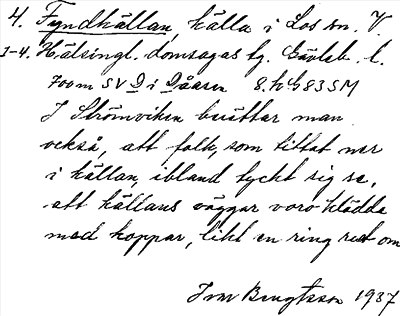 4. Fyndkällan, källa i Los sn. V
1-4. Hälsingl. domsagas tg. Gävleb. l.
700 m SV D i Dåasen 8.h 683 SM
I Strömviken berättar man
också, att folk, som tittat ner
i källan, ibland tyckt sig se,
att källans väggar voro klädda
med koppar, likt en ring rest om
Bengtsson 1937